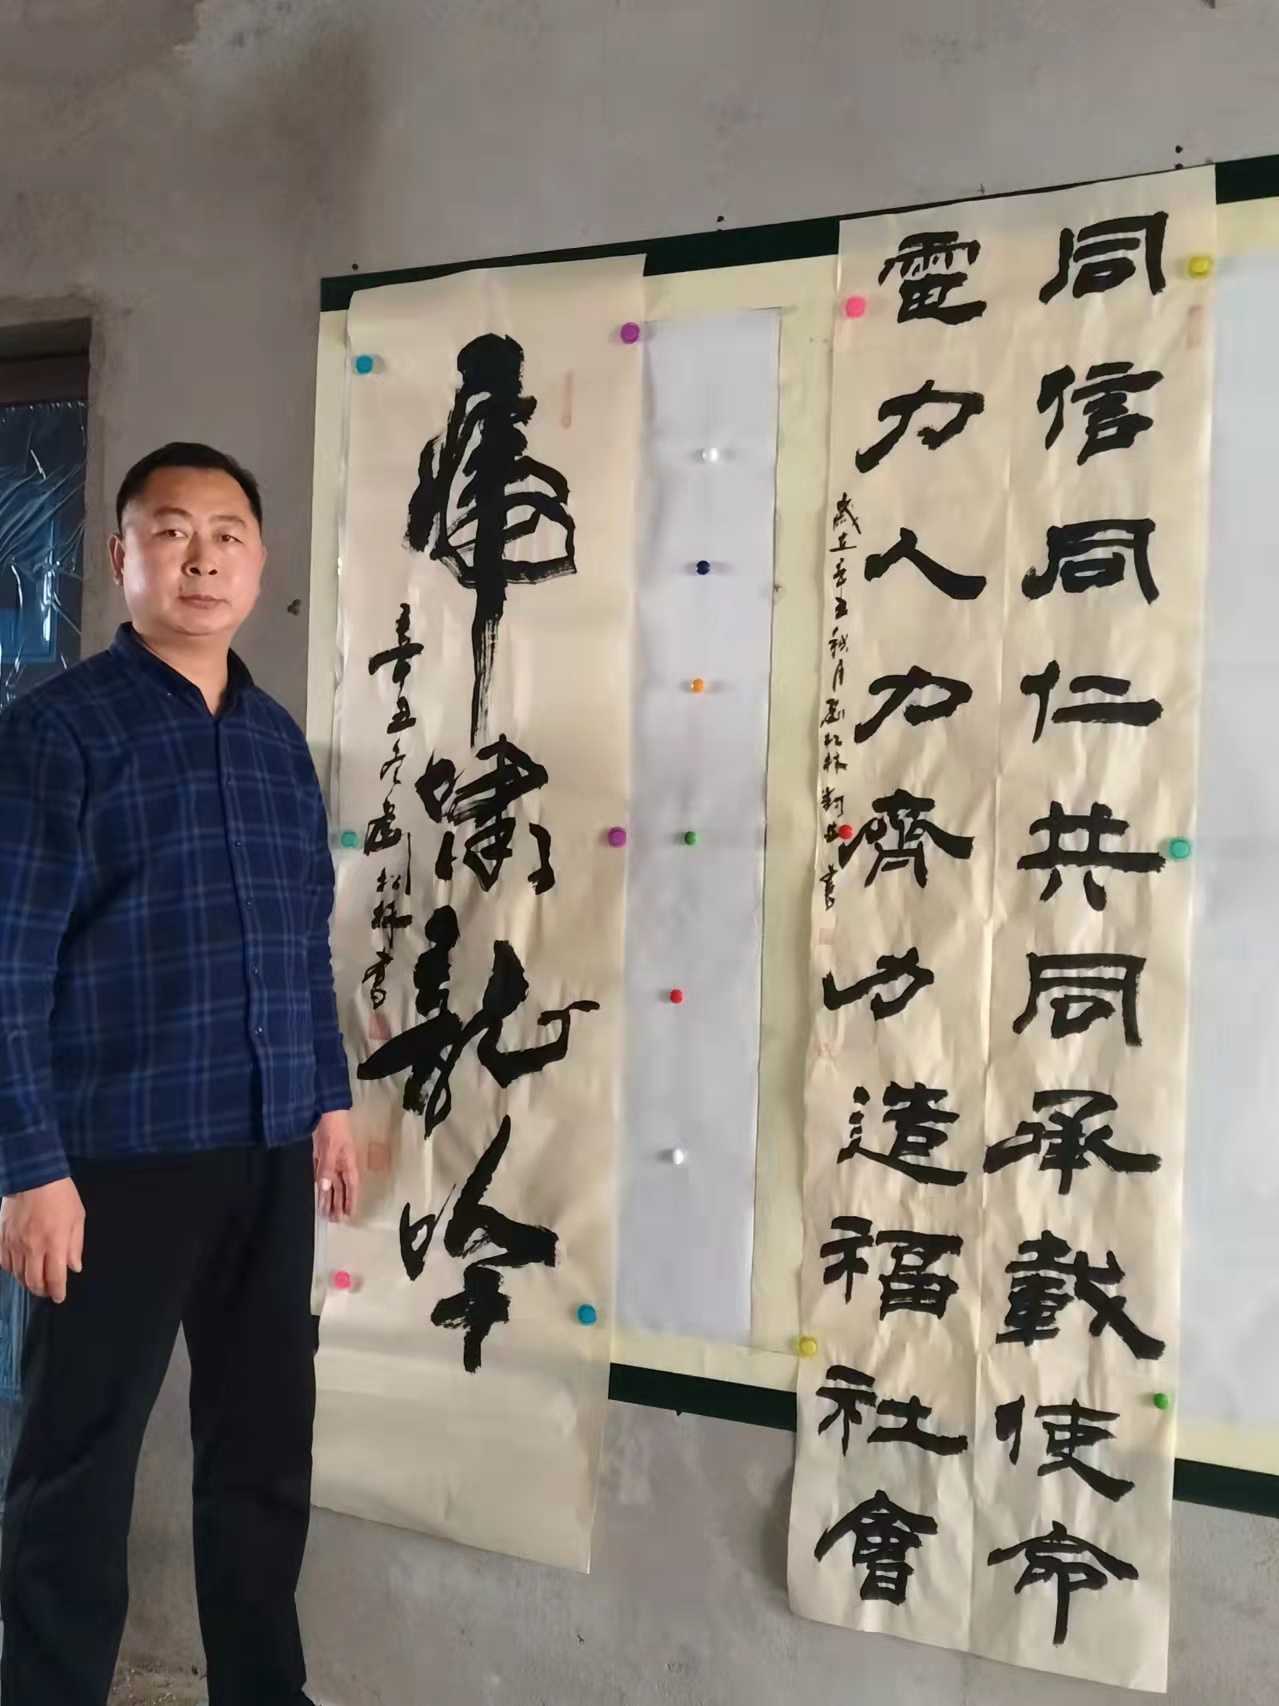 同信同仁共同承載使命
電力人力齊力造福社會
歲在辛丑秋月劉松林書
虎嘯龍吟
辛丑冬劉松林書